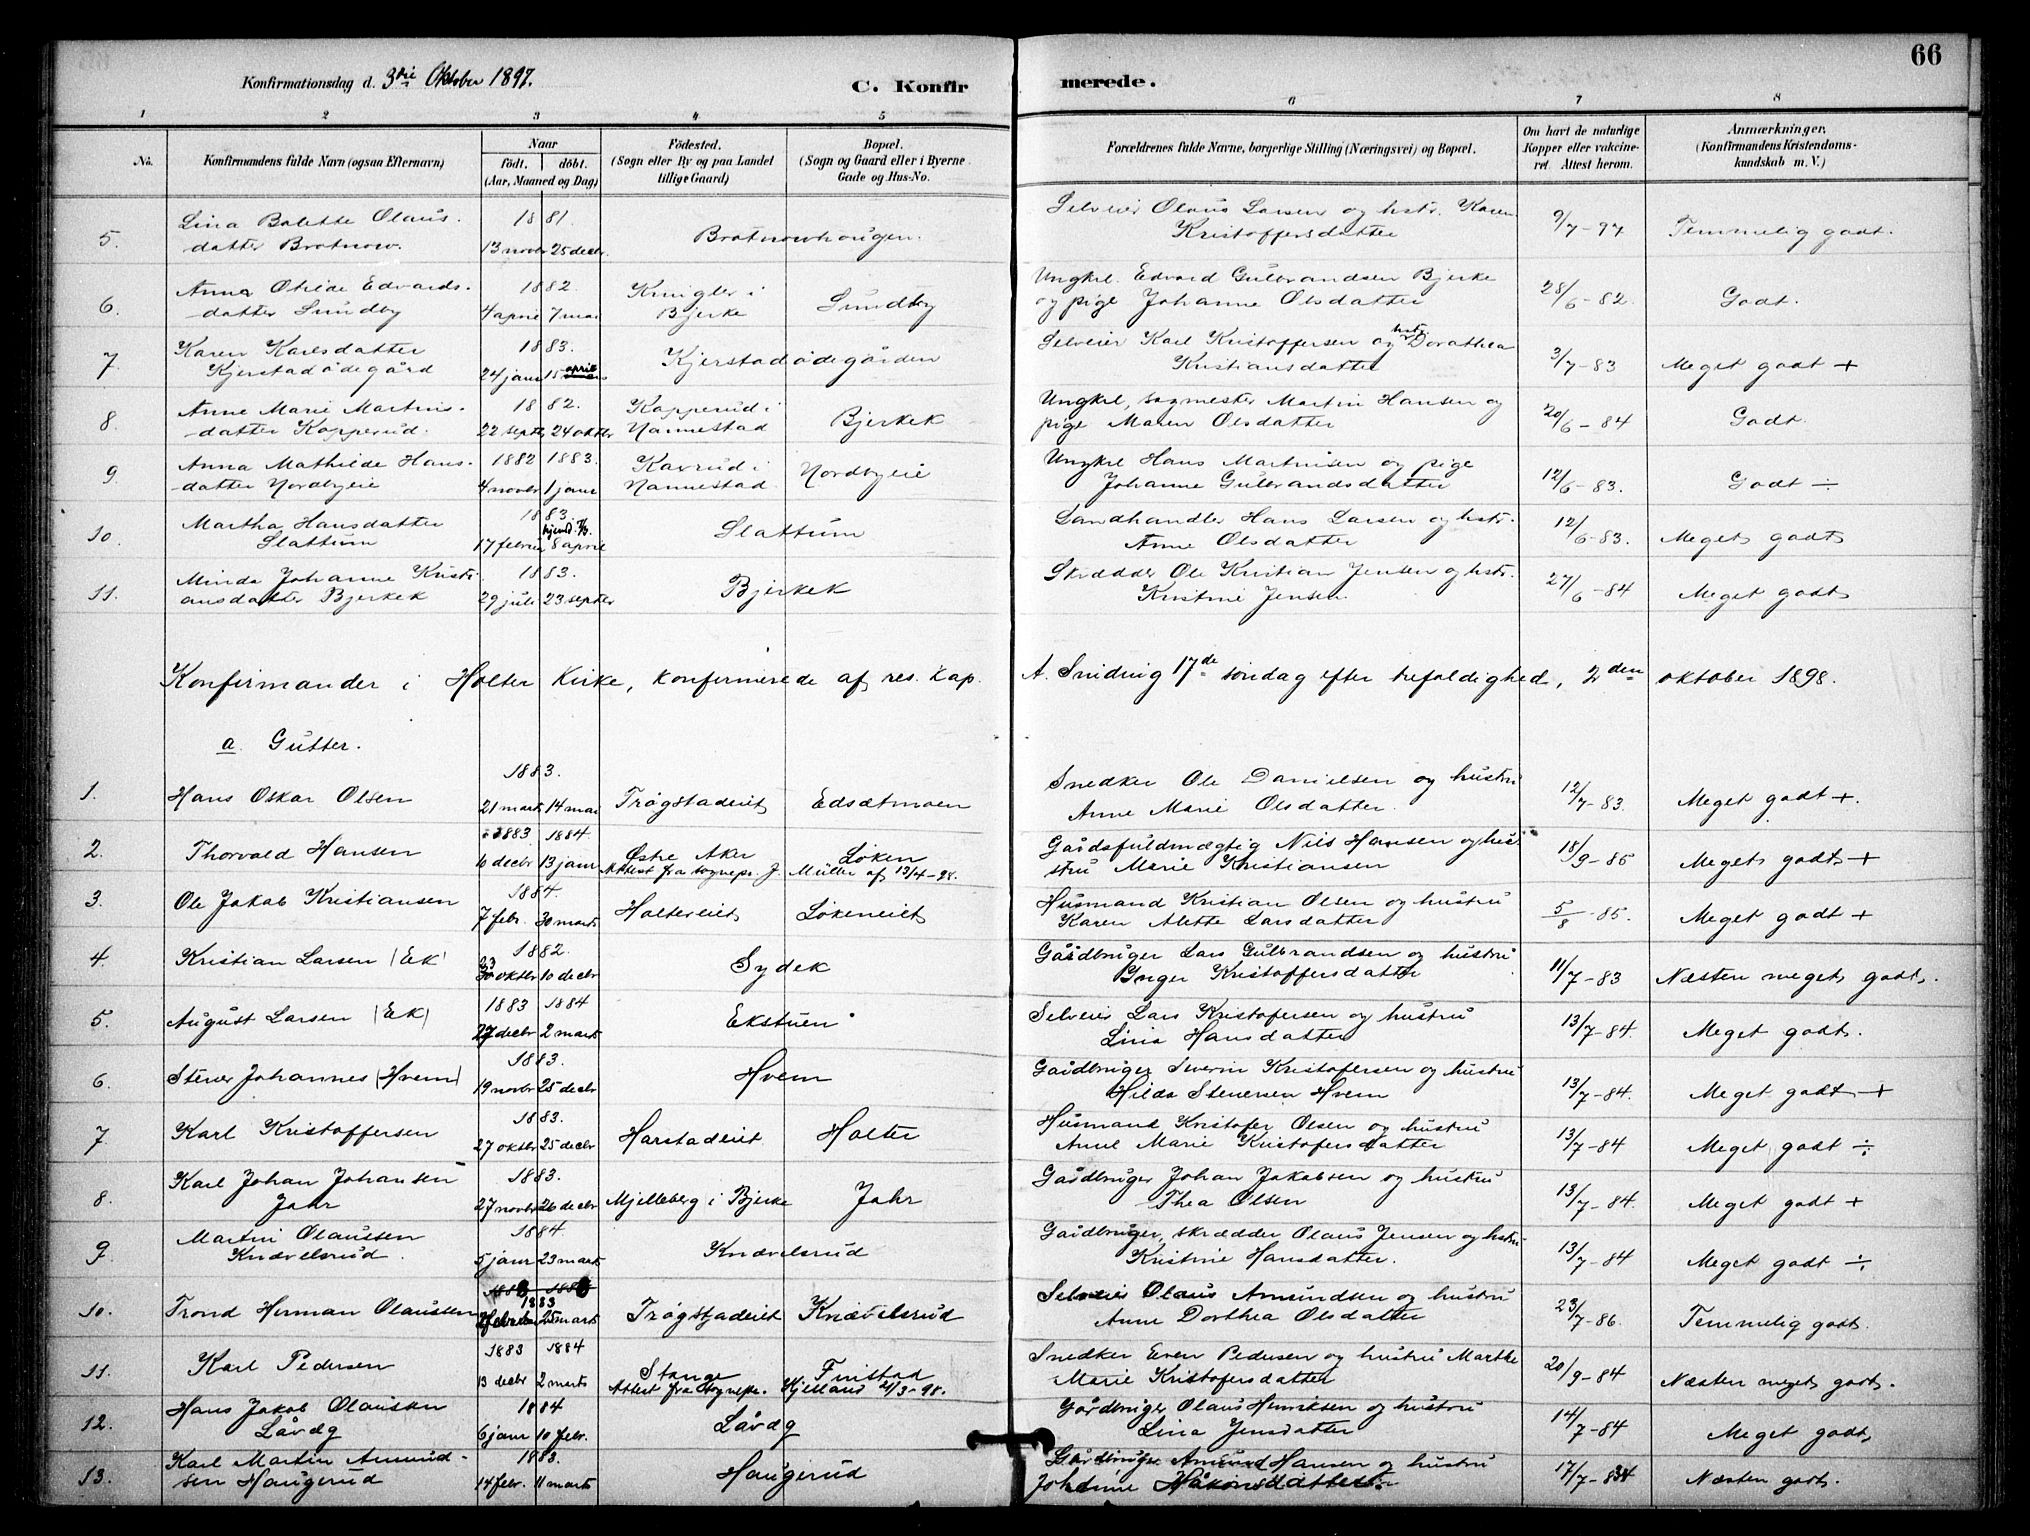 66
Konfirmationsdag d. 3die Oktober 1897.
C. Konfirmerede.
1 2 3 4 5 6 7 8
No. Konfirmandens fulde Navn (ogsaa Efternavn) Naar født. døbt. (Aar, Maaned og Dag) Fødested. (Sogn eller By og paa Landet tillige Gaard) Bopæl. (Sogn og Gaard eller i Byerne Gade og Hus-No. Forældrenes fulde Navne, borgerlige Stilling (Næringsvei) og Bopæl. Om havt de naturlige Kopper eller vaccineret. Attest herom. Anmærkninger. (Konfirmandens Kristendomskundskab m. V.)
Lina Bolette Olaus- 1881 Selveier Olaus Larsen og hstr. Karen
5. datter Bratnow. 13 novbr 25 decbr. Bratnowhaugen. Kristoffersdatter 9/7-97 Temmelig godt.
Anna Otilde Edvards- 1882. Knigler i Ungkel. Edvard Gulbrandsen Bjerke
6. datter Sundby 4 april 7 mai Bjerke Sundby og pige Johanne Olsdatter 28/6-82. Godt.
Karen Karlsdatter 1883. Selveier Karl Kristoffersen og hstr. Dorathea
7. Kjerstadødegård 24 janr 15 april Kjerstadødegården Kristiansdatter 3/7-83 Meget godt +
Anne Marie Martins- 1882. Kopperud i Ungkel, sagmester Martin Hansen og
8. datter Kopperud. 22 septbr 24 oktbr Nannestad Bjerkek pige Maren Olsdatter 20/6-84 Godt.
Anna Mathilde Hans- 1882 1883. Kavrud i Ungkel Hans Martinsen og pige
9. datter Nordbyeie 4 novbr 1 janr Nannestad Nordbyeie Johanne Gulbrandsdatter 12/6-83. Godt ÷
Martha Hansdatter 1883. Landhandler Hans Larsen og hstr.
10. Slattum 17 febr 8 april Slattum Anne Olsdatter 12/6-83. Meget godt
Minda Johanne Kristi- 1883. Skrædder Ole Kristian Jensen og hstr.
11. ansdatter Bjerkek 29 juli 23 septbr Bjerkek Kristine Jensen. 27/6-84 Meget godt
Konfirmander i Holter Kirke, konfirmerede af res. kap. A. Sinding 17de søndag efter trefoldighed, 2den oktober 1898.
a. Gutter.
1883. Snedker Ole Danielsen og hustru
1. Hans Oskar Olsen 21 marts 14 mai Trøgstadeiet Edsætmoen Anne Marie Olsdatter. 12/7-83. Meget godt +.
1883 1884 Gårdsfuldmægtig Nils Hansen og hu-
2. Thorvald Hansen 16 decbr 13 janr Østre Aker Løken stru Marie Kristiansen 18/9-85 Meget godt +
Attest fra sognepr. J. Müller af 13/4-98.
1884. Husmand Kristian Olsen og hustru
3. Ole Jakob Kristiansen 7 febr. 30 marts Holtereiet Løkeneiet Karen Alette Larsdatter 5/8-85. Meget godt +
1882. Gårdbruger Lars Gulbrandsen og hustru
4. Kristian Larsen (Ek) 23 oktbr 10 decbr Sydek Inger Kristoffersdatter 11/7-83 Næsten meget godt.
1883 1884 Selveier Lars Kristofersen og hustru
5. August Larsen (Ek) 27 decbr 2 marts Ekstuen Lina Hansdatter 13/7-84. Meget godt.
1883. Gårdbruger Severin Kristofersen og hustru
6. Stener Johannes (Hvem) 19 novbr 25 decbr Hvem Hilda Stenersen Hvem 13/7-84. Meget godt +
1883. Husmand Kristofer Olsen og hustru
7 Karl Kristoffersen 27 oktbr 25 decbr Harstadeiet Holter Anne Marie Kristofersdatter 13/7-84 Meget godt ÷
Karl Johan Johansen 1883. Gårdbruger Johan Jakobsen og hustru
8. Jahr 27 novbr 26 decbr Mjelleberg i Bjerke Jahr Thea Olsen 13/7-84. Meget godt +
Martin Olaussen 1884. Gårdbruger, skrædder Olaus Jensen og hstru
9 Knævelsrud. 5 janr 23 marts Knævelsrud Kristine Hansdatter. 13/7-84 Meget godt ÷
1883 Selveier Olaus Amundsen og hustru
10. Trond Herman Olaussen 25 marts Trøgstadeiet Knævelsrud Anne Dorthea Olsdatter 23/7-86. Temmelig godt.
1883 1884 Snedker Even Pedersen og hustru Marthe
11. Karl Pedersen 13 decbr 2 marts Stange Finstad Marie Kristofersdatter 20/9-84 Næsten meget godt.
Attest fra sognepr. Kjelland 21/3-98.
Hans Jakob Olaussen 1884 Gårdbruger Olaus Henriksen og hustru
12. Låvåg 6 janr 10 febr. Låvåg Lina Jensdatter 14/7-84 Meget godt,
Karl Martin Amund- 1883. Gårdbruger Amund Hansen og hustru
13. sen Haugerud 14 febr. 11 marts Haugerud Johanne Håkonsdatter. 17/7-84 Næsten godt.